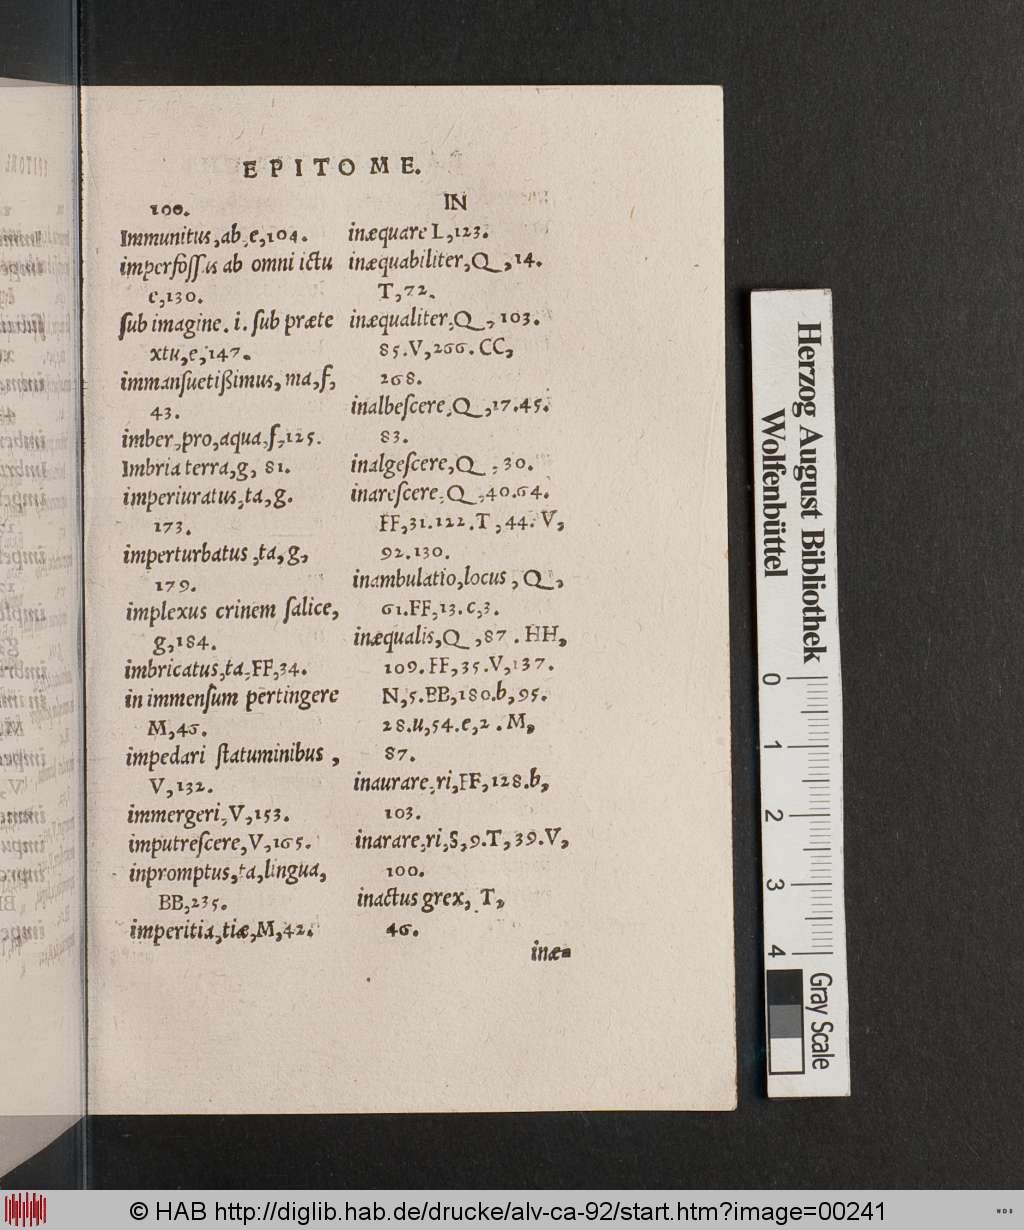 EPITOME.
100.
Immunitus, ab, e, 104.
imperfoſſus ab omni ictu
e, 130.
ſub imagine. i. ſub præte
xtu, e, 147.
immanſuetißimus, ma, f,
43.
imber, pro, aqua, f, 125.
Imbria terra, g, 81.
imperiuratus, ta, g.
173.
imperturbatus, ta, g,
179.
implexus crinem ſalice,
g, 184.
imbricatus, ta, FF, 34.
in immenſum pertingere
M, 46.
impedari ſtatuminibus,
V, 132.
immergeri, V, 153.
imputreſcere, V, 165.
inpromptus, ta, lingua,
BB, 235.
imperitia, tiæ, M, 42.
IN
inæquare L, 123.
inæquabiliter, Q, 14.
T, 72.
inæqualiter, Q, 103.
85. V, 266. CC,
268.
inalbeſcere, Q, 17. 45.
83.
inalgeſcere, Q, 30.
inareſcere, Q, 40. 64.
FF, 31. 122. T, 44. V,
92. 130.
inambulatio, locus, Q,
61. FF, 13. c, 3.
inæqualis, Q, 87. HH,
109. FF, 35. V, 137.
N, 5. BB, 180. b, 95.
28. u, 54. e, 2. M,
87.
inaurare, ri, FF, 128. b,
103.
inarare, ri, S, 9. T, 39. V,
100.
inactus grex, T,
46.
inæ-
Herzog August Bibliothek
Wolfenbüttel
0 1 2 3 4
Gray Scale
© HAB http://diglib.hab.de/drucke/alv-ca-92/start.htm?image=00241